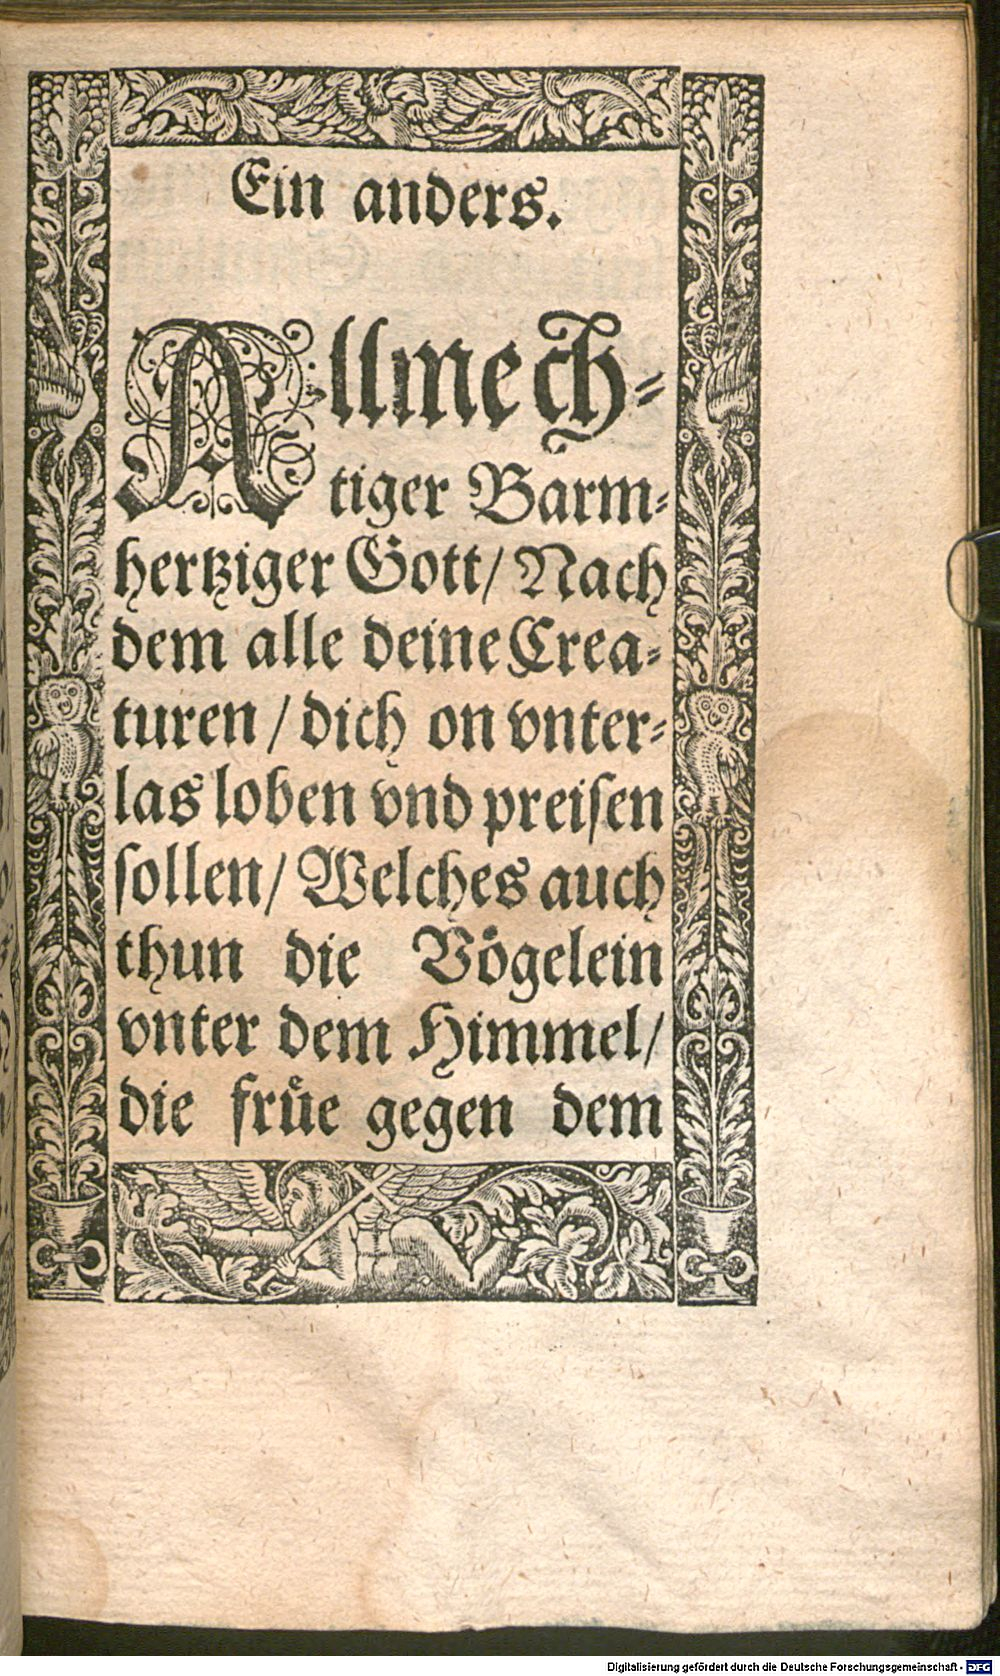 Ein anders.
Allmech⸗
tiger Barm⸗
hertziger Gott/ Nach
dem alle deine Crea⸗
turen / dich on vnter⸗
las loben vnd preiſen
ſollen/ Welches auch
thun die Voͤgelein
vnter dem Himmel/
die fruͤe gegen dem
Digitalisierung gefördert durch die Deutsche Forschungsgemeinschaft - DFG